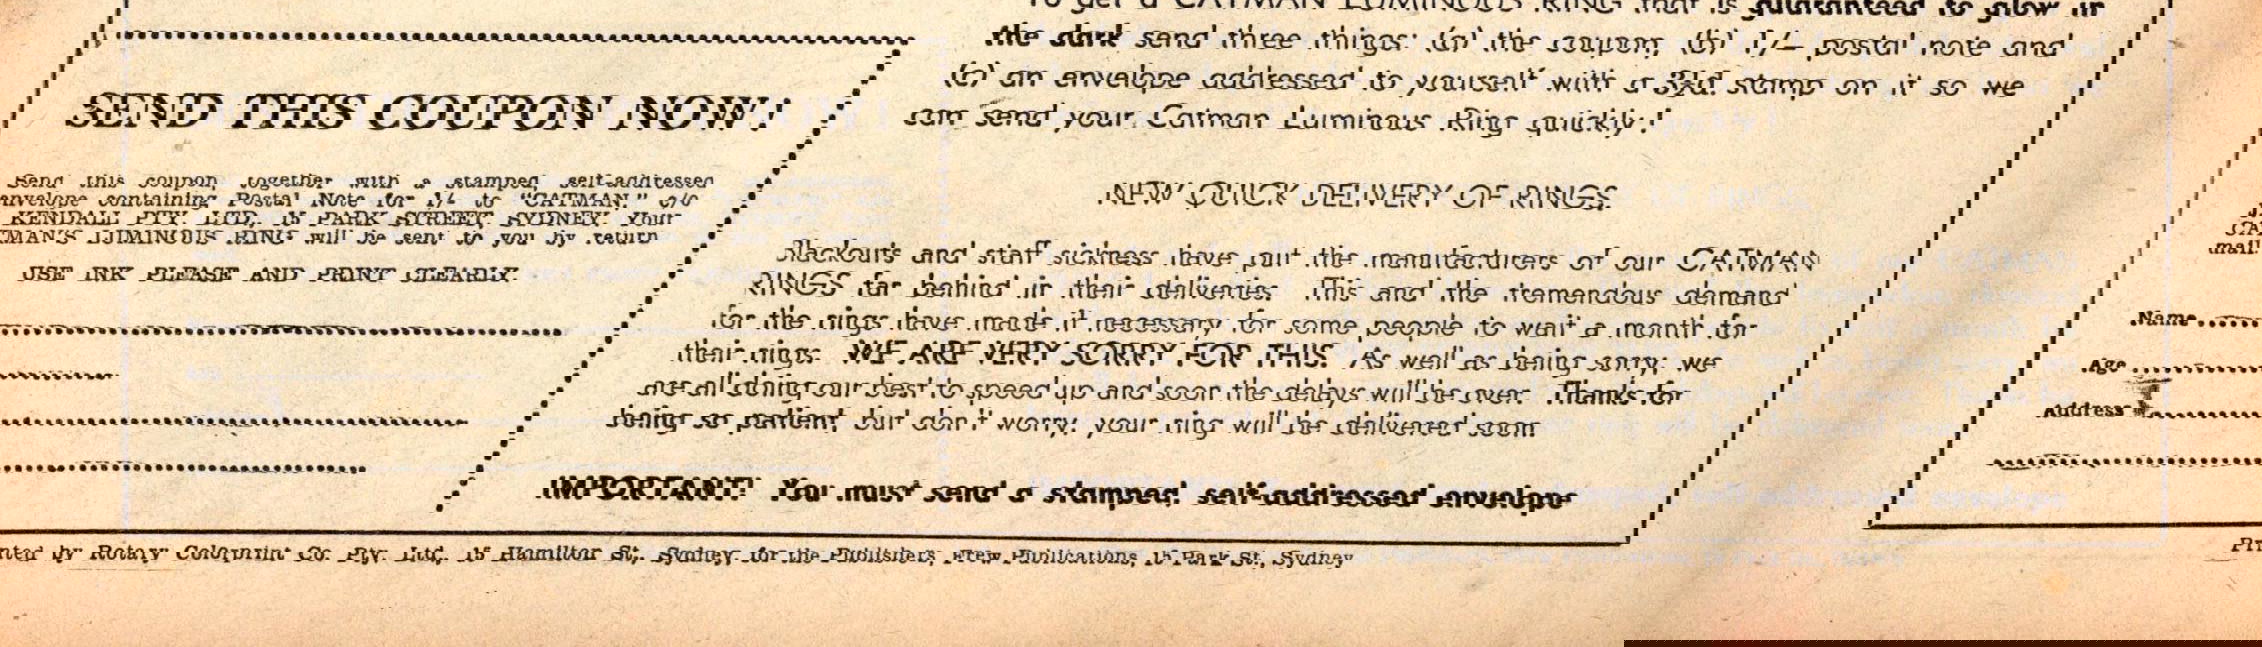 To get a CATMAN LUMINOUS RING that is guaranteed to glow in
the dark send three things: (a) the coupon, (b) 1/- postal note and
(c) an envelope addressed to yourself with a 3½d. stamp on it so we
can send your Catman Luminous Ring quickly!
NEW QUICK DELIVERY OF RINGS.
Blackouts and staff sickness have put the manufacturers of our CATMAN
RINGS far behind in their deliveries. This and the tremendous demand
for the rings have made it necessary for some people to wait a month for
their rings. WE ARE VERY SORRY FOR THIS. As well as being sorry, we
are all doing our best to speed up and soon the delays will be over. Thanks for
being so patient, but don't worry, your ring will be delivered soon.
IMPORTANT! You must send a stamped, self-addressed envelope
SEND THIS COUPON NOW!
Send this coupon, together with a stamped, self-addressed
envelope containing Postal Note for 1/- to "CATMAN," c/o
KENDALL PTY. LTD., 15 PARK STREET, SYDNEY. Your
TMAN'S LUMINOUS RING will be sent to you by return
USE INK PLEASE AND PRINT CLEARLY.
nted by Rotary Colorprint Co. Pty. Ltd., 15 Hamilton St., Sydney, for the Publishers, Frew Publications, 15 Park St., Sydney
CA
mail.
Name
Age
Address
Pri